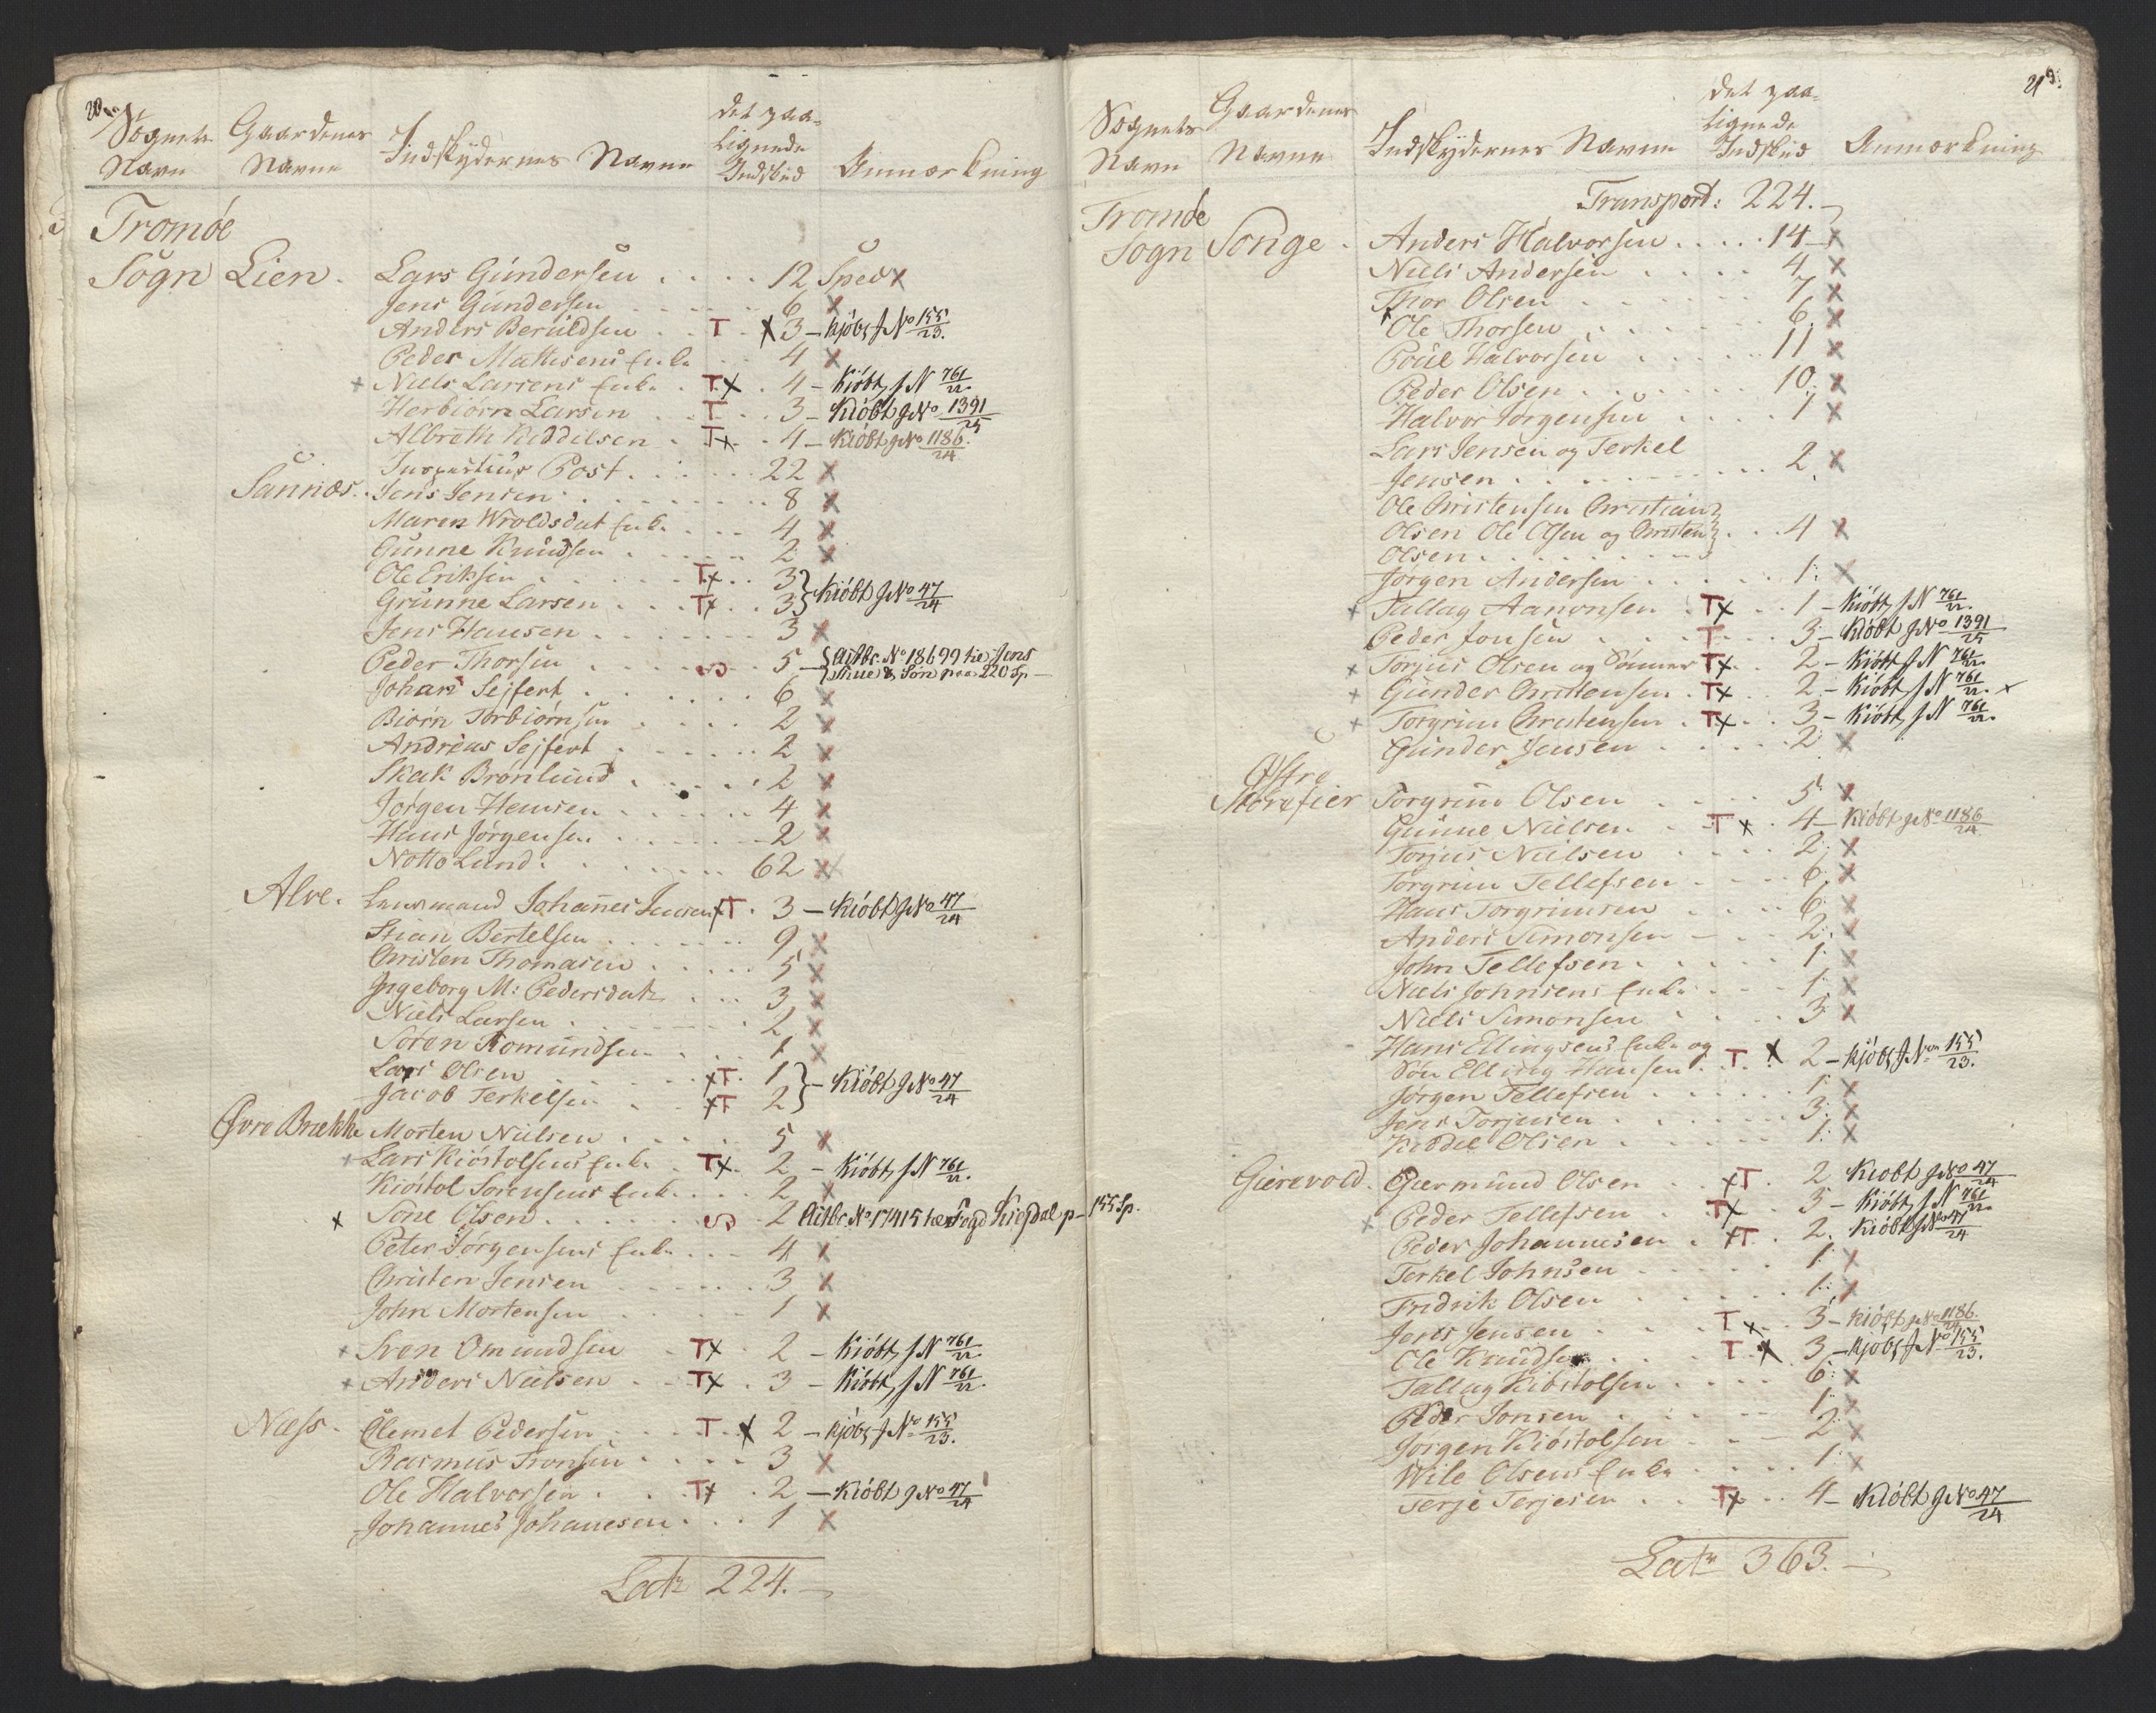 20
Sognets Navn Gaardenes Navne Indskydernes Navne det paalignede Indskud Anmærkning
Tromöe
Sogn Lien. Lars Gundersen 12 Sped x
Jens Gundersen 6 x
Anders Beruldsen T x 3 – kjöbt J No 155/23.
Peder Mathisens Enke 4 x
x Niels Larsens Enke Tx 4 – Kiöbt, J N 761/22.
Herbiörn Larsen T 3 – Kiöbt J No 1391/25
Albreth Keddelsen Tx 4 – Kiöbt J No 1186/24.
Inspecteur Post 22 x
Sannæs. Jens Jensen 8 x
Maren Wroldsdat Enke 4 x
Gunne Knudsen 2 x
Ole Eriksen Tx 3
Grunne Larsen Tx 3 } Kiöbt J No 47/24
Jens Hansen 3 x
Peder Thorsen 5 – { Actbr. No 18699 til Jens
Thue Sön paa 220 Sp –
Johan Sejfert 6 x
Biörn Torbiörnsen 2 x
Andreas Sejfert 2 x
Skak Brönlund 2 x
Jörgen Hansen 4 x
Hans Jörgensen 2 x
Notto Lund 62 x
Alve. Lensmand Johannes Jensen xT 3 – Kiöbt J No 47/24
Stian Bertelsen 9 x
Christen Thomasen 5 x
Ingeborg M: Pedersdatr 3 x
Niels Larsen 2 x
Sören Romundsen 1 x
Lars Olsen xT 1
Jacob Terkelsen xT 2 } – Kiöbt J No 47/24
Övre Brække Morten Nielsen 5 x
x Lars Kiöstolsens Enke Tx 2 – Kiöbt, J N 761/22.
Kiöstol Sörensens Enke 2 x
x Tone Olsen 2 Actbr. No 17415 Foged Kiefdal p – 155 Sp.
Peter Jörgensens Enke 4 x
Christen Jensen 3 x
John Mortensen 1 x
x Sven Omundsen Tx 2 – Kiöbt, J N 761/22.
x Anders Nielsen Tx 3 – Kiöbt, J N 761/22.
Næss. Clemet Pedersen T x 2 – kjöbt J No 155/23.
Rasmus Tronsen 3 x
Ole Halvorsen Tx 2 – Kiöbt J No 47/24
Johannes Johannesen 1 x
Latr 224. –
21
Sognets Navn Gaardenes Navne Indskydernes Navne det paalignede Indskud Anmærkning
Transport: 224. –
Tromöe
Sogn Songe. Anders Halvorsen 14 x
Niels Andersen 4 x
Thor Olsen 7 x
Ole Thorsen 6 x
Poul Halvorsen 11 x
Peder Olsen 10 x
Halvor Jörgensen 1 x
Lars Jensen og Terkel
Jensen 2 x
Ole Christensen Christian
Olsen Ole Olsen og Christen 4 x
Olsen
Jörgen Andersen 1 x
x Tallag Aanonsen Tx 1 – Kiöbt, J N 761/22.
Peder Jonsen T 3 – Kiöbt J No 1391/25
x Torjus Olsen og Sönner Tx 2 – Kiöbt, J N 761/22.
x Gunder Christensen Tx 2 – Kiöbt J N 761/22. x
x Torgrim Christensen Tx 3 – Kiöbt, J N 761/22.
Gunder Jensen 2 x
Östre
Torgrim Olsen 5 x
Gunne Nielsen T x 4 – Kiöbt J No 1186/24
Torjus Nielsen 2 x
Torgrim Tellefsen 6 x
Hans Torgrimsen 6 x
Anders Simonsen 2 x
John Tellefsen 1 x
Niels Johnsens Enke 1 x
Niels Simonsen 3 x
Hans Ellingsens Enke og
Sön Elling Hansen T x 2 – kjöbt J No 155/23.
Jörgen Tellefsen 1 x
Jens Torjusen 3 x
Keddel Olsen 1 x
Gierevold. Giermund Olsen xT 2 Kiöbt J No 47/24
x Peder Tellefsen Tx 5 – Kiöbt, J N 761/22.
Peder Johannesen xT 2. Kiöbt J No 47/24
Terkel Johnsen 1 x
Fridrik Olsen 1 x
Jens Jensen T x 3 – Kiöbt J No 1186/24.
Ole Knudsen T x 3 – kjöbt J No 155/23.
Tallag Kiöstolsen 6 x
Peder Jonsen 1 x
Jörgen Kiöstolsen 2 x
Wile Olsens Enke 1 x
Terje Terjesen Tx 4 – Kiöbt J No 47/24
Latr 363. –